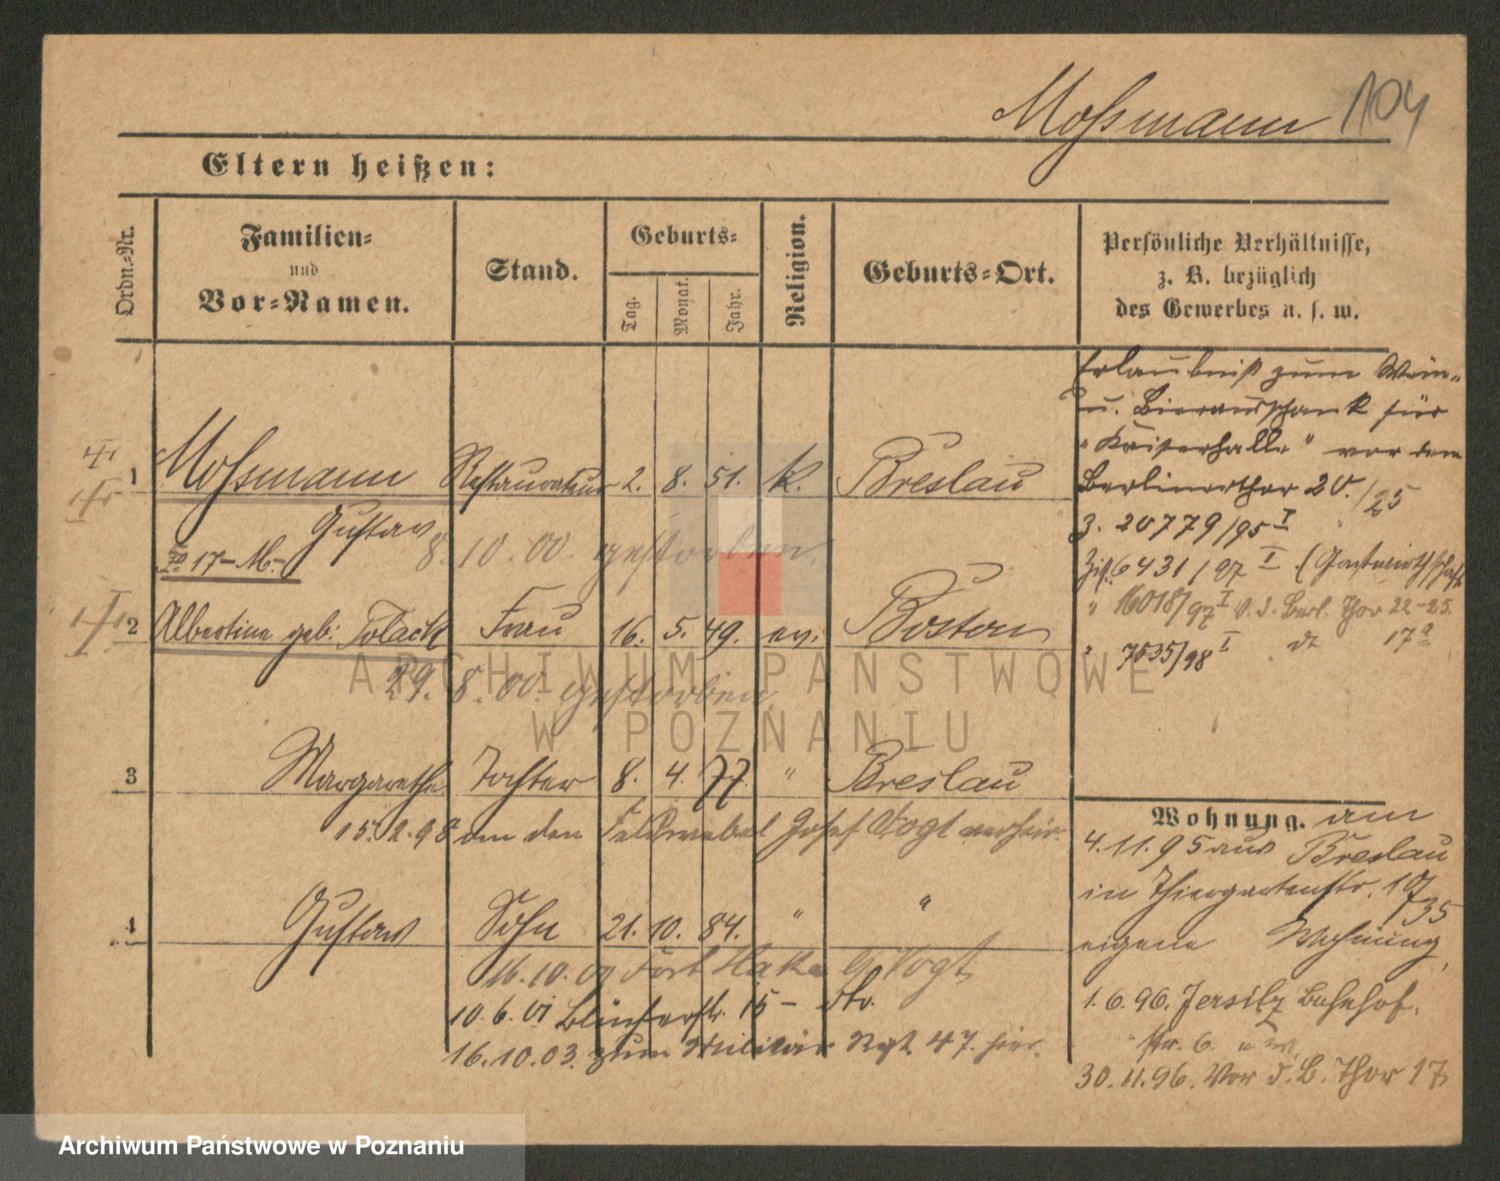 Moßmann 104
Eltern heißen:
Ordn.-Nr.
Familien-
und
Vor-Namen.
Stand.
Geburts-
Tag.
Monat.
Jahr.
Religion.
Geburts-Ort.
Persönliche Verhältnisse,
z. B. bezüglich
des Gewerbes u. s. w.
Erlaubniß zum Wein-
u. Bierausschank für
"Kaiserhalle" vor dem
Berlinerthor 20./25
3. 20779/95 I
6431/97 I (Gastwirthschaft
" 16018/97 I v. d. Berl. Thor 22-25.
" 7535/98 I dt 17a
1 Moßmann Restaurateur 2. 8. 51. k. Breslau
Gustav 8.10.00. gestorben.
17-M.-
2 Albertine geb: Polack Frau 16. 5. 49. ev. Boston
29. 8. 00. gestorben
3 Margarethe Tochter 8. 4. 77 " Breslau
15. 2. 98 an den Feldwebel Josef Vogt verheir.
4 Gustav Sohn 21. 10. 84. " "
16.10.00 Fort Hake b/Vogt
10.6.01 Blücherstr. 15 - dto.
16.10.03. zum Militär Rgt. 47. hier.
Wohnung. am
4.11.95 aus Breslau
in Thiergartenstr. 10/35
eigene Wohnung,
1.6.96. Jersitz Bahnhof-
str. 6.
30.11.96. Vor d. B. Thor 17
ARCHIWUM PAŃSTWOWE
W POZNANIU
Archiwum Państwowe w Poznaniu